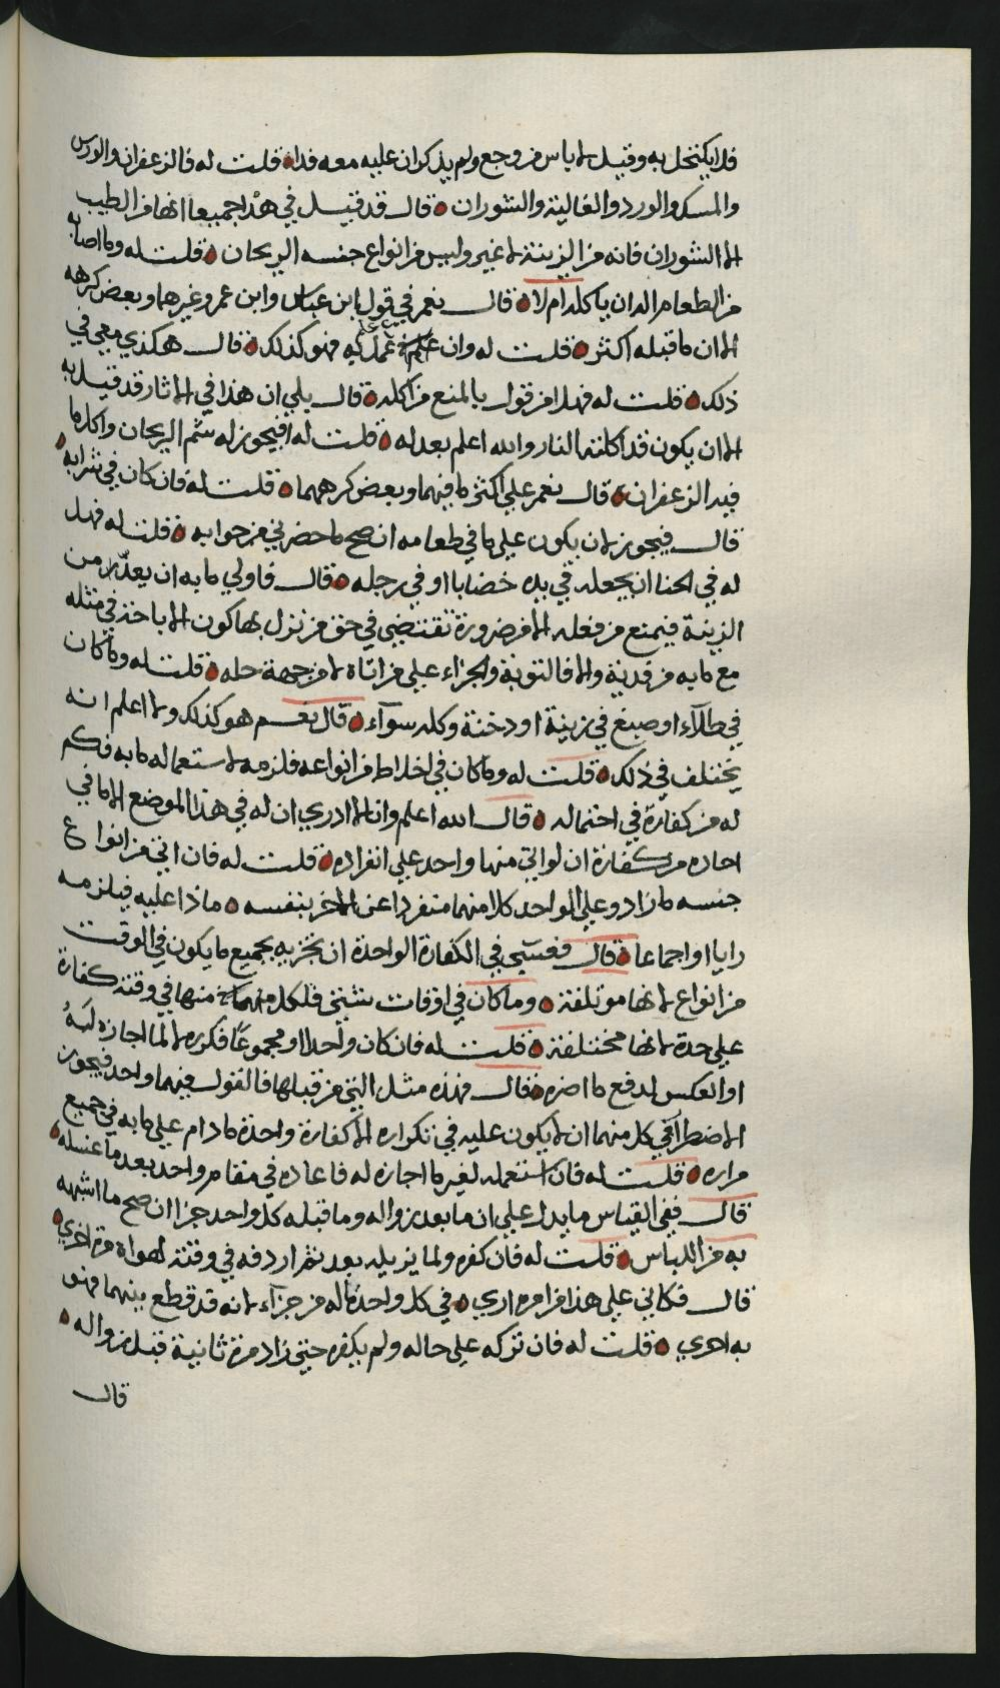 فلا يكتحل به وقيل لا باس من وجع ولم يذكر ان عليه معه فدا قلت له فالزعفران والورس
والمسك والورد والغالية والشوران قال قد قيل في هذا جميعا انها من الطيب
الا الشوران فانه من الزينة لا غير وليس من انواع جنسه الريحان قلت له وما اصابه
من الطعام اله ان ياكله ام لا قال نعم في قول ابن عباس وابن عمر وغيرهما وبعض كرهه
الا ان ما قبله اكثر قلت له وان علم عمل فيه فهو كذلك قال هكذي معي في
ذلك قلت له فهل من قول بالمنع من اكله قال بلي ان هذا في الاثار قد قيل به
الا ان يكون قد اكلته النار والله اعلم بعدله قلت له افيجوز له شم الريحان واكل ما
فيه الزعفران قال نعم علي اكثر ما فيهما وبعض كرههما قلت له فان كان في شرابه
قال فيجوز لان يكون علي ما في طعامه ان صح ما حضرني من جوابه قلت له فهل
له في الحنا ان يجعله في يده خضابا او في رجله قال فاولي ما به ان يعد من
الزينة فيمنع من فعله الا من ضرورة تقتضي في حق من نزل بها كون الاباحة في مثله
مع ما به من فدية والا فالتوبة والجزاء علي من اتاه لا من جهة حله قلت له وما كان
في طلاء او صبغ في زينة او دخنة وكله سواء قال نعم هو كذلك ولا اعلم انه
يختلف في ذلك قلت له وما كان في اخلاط من انواعه فلزمه لاستعماله ما به فكم
له من كفارة في احتماله قال الله اعلم وانا لا ادري ان له في هذا الموضع الا ما في
احاده من كفارة ان لو اتي منها واحد علي انفراده قلت له فان اتي من انواع
جنسه ما زاد علي الواحد كلا منهما منفردا عن الاخر بنفسه ماذا عليه فيلزمه
رايا او اجماعا قال فعسي في الكفارة الواحدة ان تجزيه بجميع ما يكون في الوقت
من انواع لانها موتلفة وما كان في اوقات شتي فلكل منها في وقته كفارة
علي حدة لانها مختلفة قلت له فان كان واحدا او مجموعا فكرره لا لما اجازه له
او العكس لدفع ما اضره قال فهذه مثل التي من قبلها فالقول فيهما واحد فيجوز
الاضطرار في كل منهما ان لا يكون عليه في تكراره الا كفارة واحدة ما دام علي ما به في جميع
مراره قلت له فان استعمله لغير ما اجازه له فاعاده في مقام واحد بعد ما غسله
قال ففي القياس ما يدل علي ان ما بعد زواله وما قبله كل واحد جزا ان صح ما اشبهه
به من اللباس قلت له فان كفره ولما يزيله بعد ثم اردفه في وقته لهواه مرة اخري
قال فكاني علي هذا من امره اري في كل واحدة ما له من جزاء لانه قد قطع بينهما فهو
به احري قلت له فان تركه علي حاله ولم يكفره حتي زاد مرة ثانية قبل زواله
قال